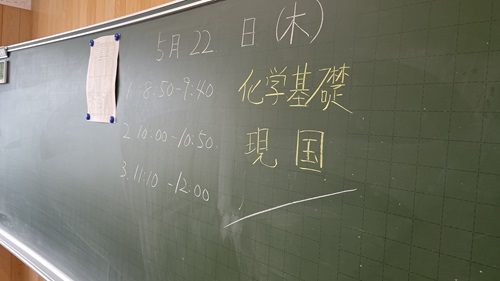 5月22日(木)
1 8:50-9:40 化学基礎
2.10:00-10:50. 現国
3.11:10-12:00